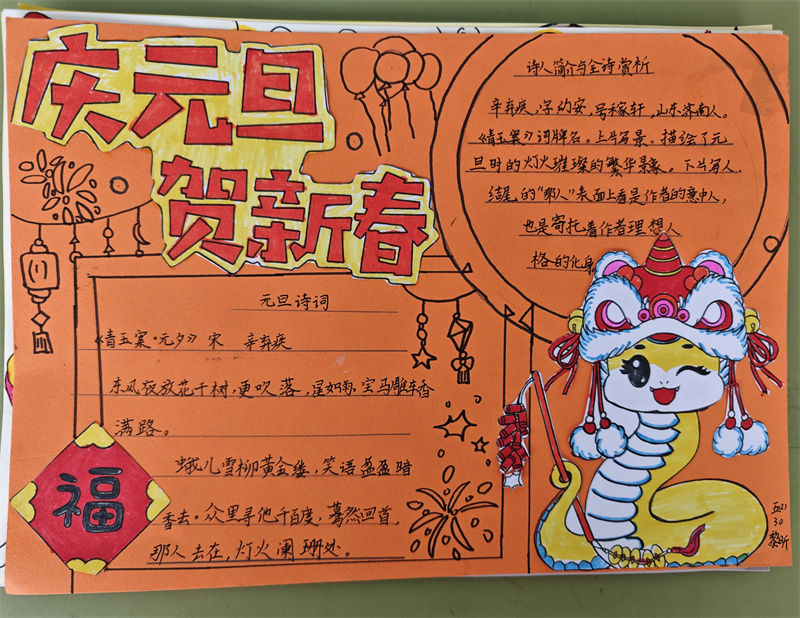 庆元旦
贺新春
诗人简介与全诗赏析
辛弃疾，字幼安，号稼轩，山东济南人。
《青玉案》词牌名。上片写景、描绘了元
旦时的灯火璀璨的繁华景象，下片写人，
结尾的“那人”表面上看是作者的意中人，
也是寄托着作者理想人
格的化身
元旦诗词
《青玉案·元夕》 宋 辛弃疾
东风夜放花千树，更吹落，星如雨。宝马雕车香
满路。
蛾儿雪柳黄金缕，笑语盈盈暗
香去。众里寻他千百度，蓦然回首，
那人去在，灯火阑珊处。
福
30